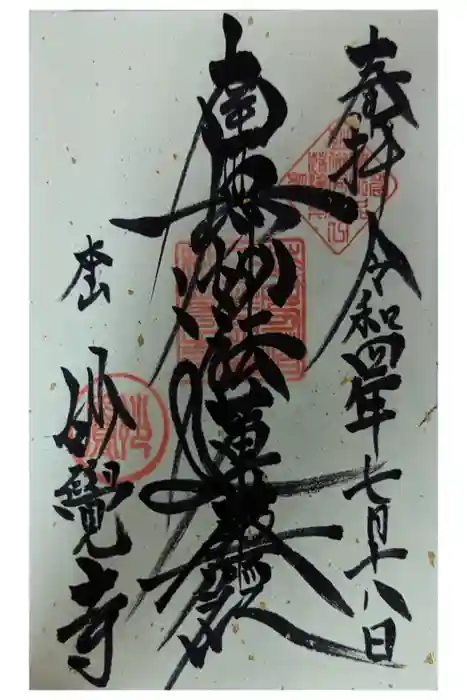 奉拝 令和四年七月十八日
南無妙法蓮華経
本山
妙覺寺